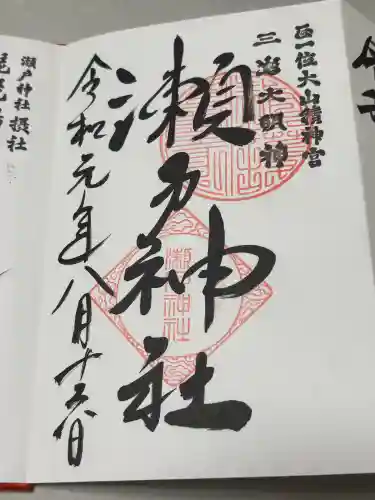 正一位大山積神宮
三島大明神
瀬戸神社
瀬戸神社
令和元年八月十六日
瀬戸神社 摂社